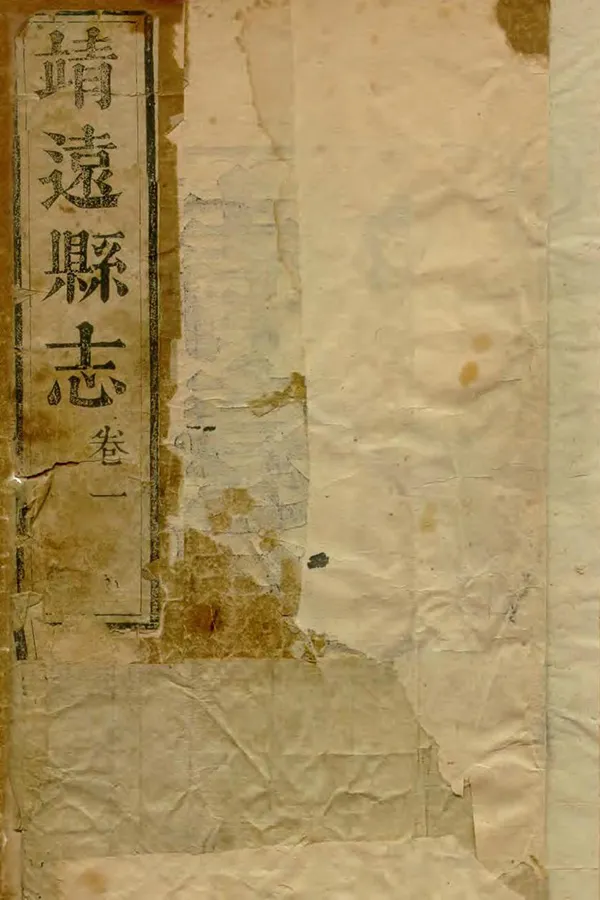 靖遠縣志
卷一